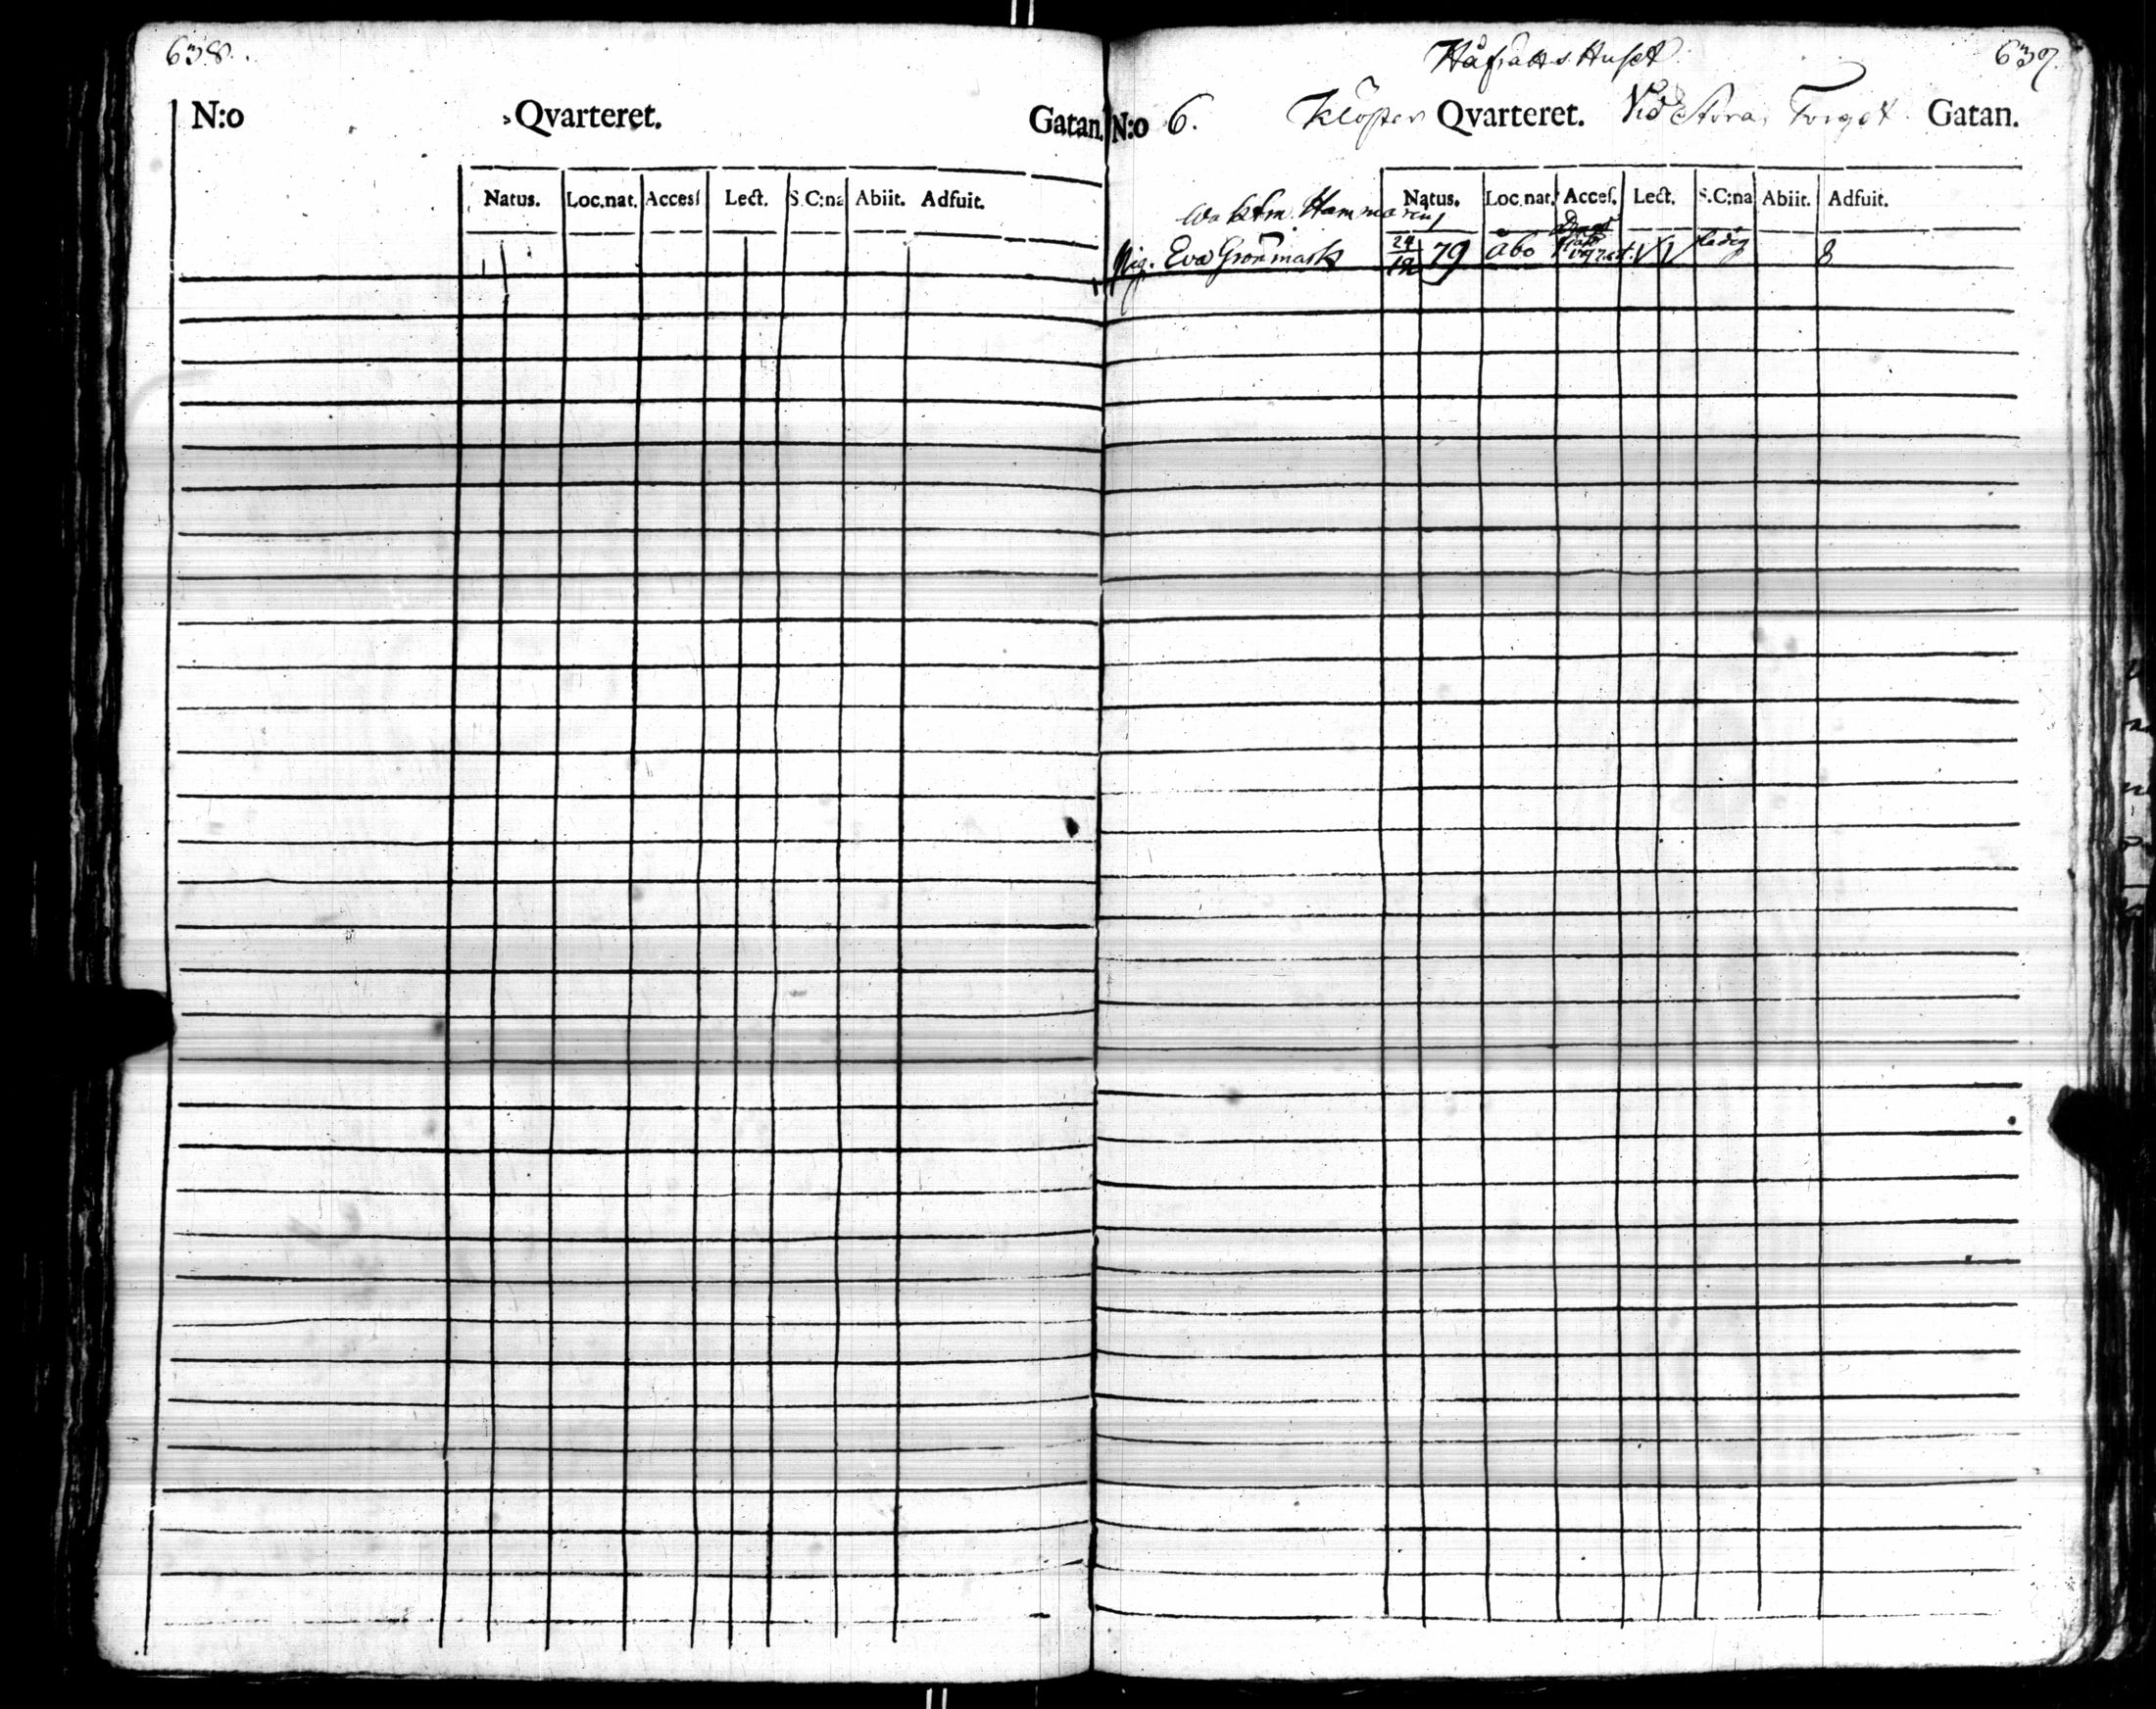 638.
N:o Qvarteret. Gatan.
Natus. Loc.nat. Accesſ Lect. S.C:na Abiit. Adfuit.
639.
Håfrätts Huset
N:o 6. Kloster Qvarteret. Vid Stora Torget Gatan.
Natus. Loc.nat. Acceſ. Lect. S.C:na Abiit. Adfuit.
Waktm. Hammaren
Pig. Eva Grönmark 24/12 79 Åbo ledig 8